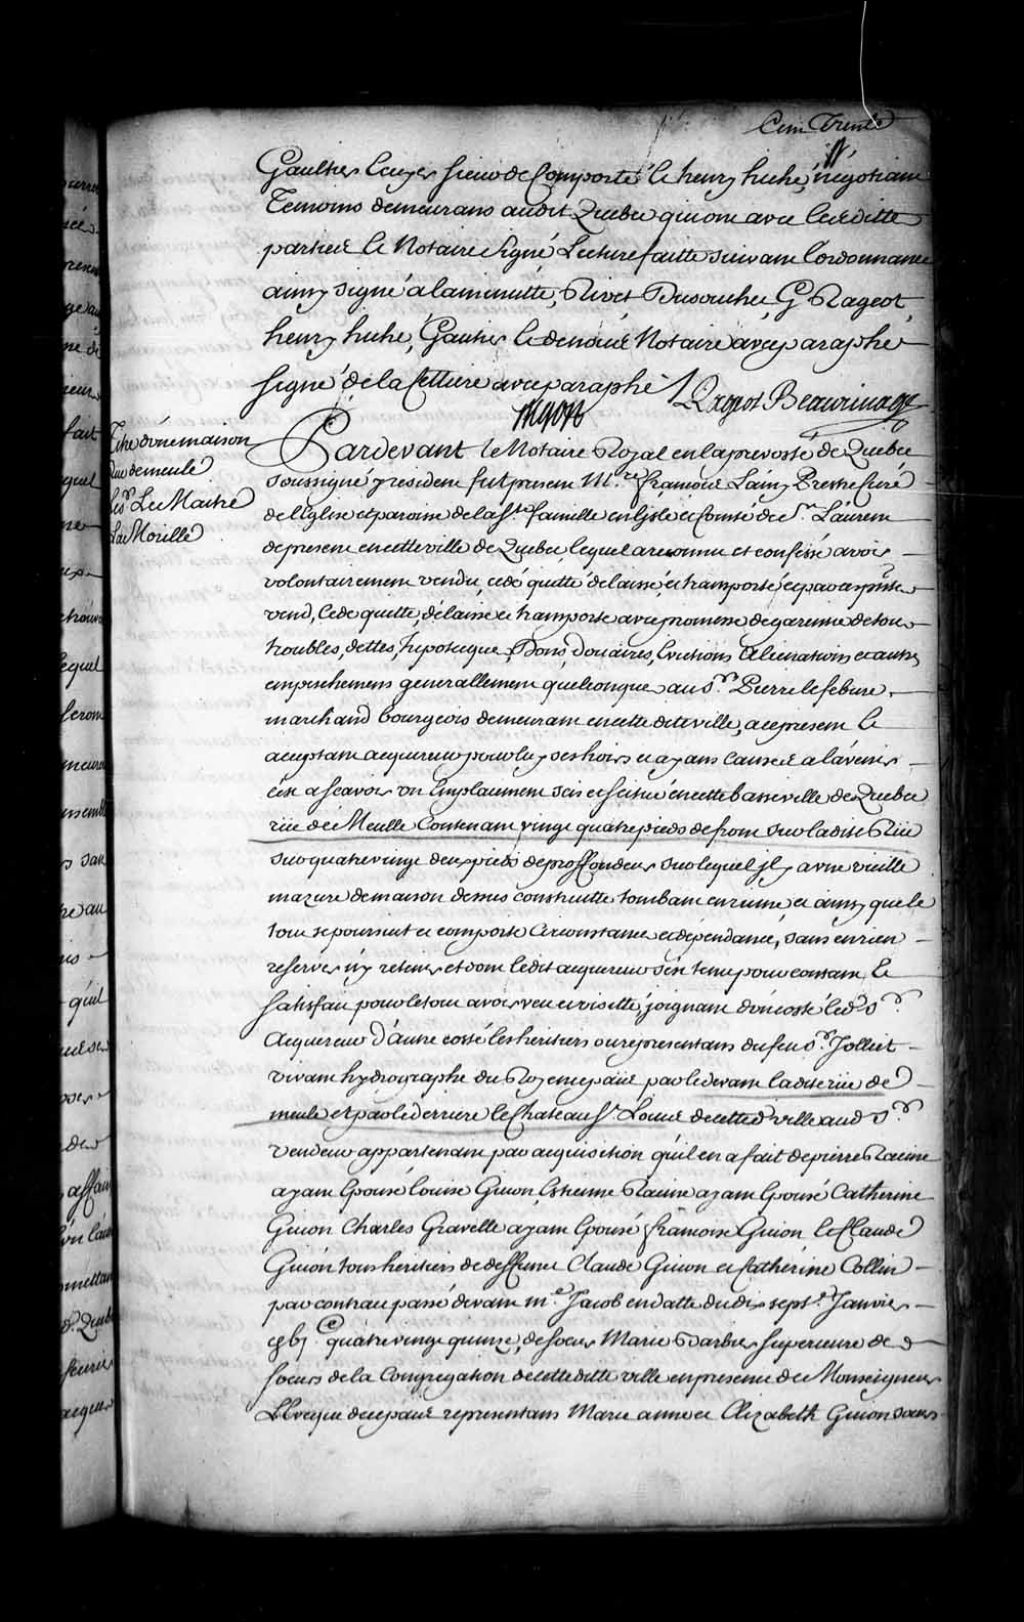 Cent Trente
Gaultier Ecuyer sieur de Comporté et henry hiché, négotiant
Temoins demeurans audit Quebec qui ont avec lesdittes
parties et Notaire signé Lecture faitte suivant lordonnance
ainsy signé a la minutte, Rivet Dusouchet, G Rageot,
henry hiché, Gautier et de nous Notaire avec paraphe
signé de la Cettiere avec paraphe
Rageot Beaurivage
Begon
Titre d'une maison
rue de meule
les Srs Le Maitre
La Morille
Pardevant le Notaire Royal en la prevosté de Quebec
soussigné y resident fut present Mre françois Lamy Prestre Curé
de l'Eglise et paroisse de la Ste famille en lisle et Comté de St Laurent
de present en cette ville de Quebec, lequel a reconnu et confessé avoir
volontairement vendu, cedé quitté delaissé, et transporté et par ces pntes
vend, Cede quitte, délaisse et transporte avec promesse de garentie de tous
troubles, dettes, hypoteques, Dons, doüaires, Evictions Alienations et autres
empeschemens generallement quelconques au Sr Pierre lefebure
marchand bourgeois demeurant en cette ditte ville, a ce present et
acceptant acquereur pour luy ses hoirs et ayans cause a l'avenir
cest a scavoir un Emplacement scis et scitué en cette basse ville de Quebec
rüe de Meulle Contenant vingt quatre pieds de front sur la dite Rüe
sur quatre vingt deux pieds de proffondeur sur lequel jl y a une vieille
mazure de maison dessus construitte tombant en ruine et ainsy que le
tout se poursuit et comporte Circonstances et dépendances, sans en rien
reserver n'y retenir et dont ledit acquereur s'est tenu pour contant et
satisfait pour le tout avoir veu et visitté, joignant d'un costé led Sr
Acquereur d'autre costé les heritiers ou representans du feu Sr Jolliet
vivant hydrographe du Roy en ce païs par le devant la dite rüe de
meule et par le derriere le Chateau St Louis de cette d ville aud Sr
Vendeur appartenant par acquisition qu'il en a fait de pierre Racine
ayant Epousé louise Guion, Estienne Racine ayant Epousé Catherine
Guion Charles Gravelle ayant Epousé françoise Guion et Claude
Guion tous heritiers de deffunts Claude Guion et Catherine Collin
par contrat passé devant me Jacob en datte du dix sept Janvier
gbj C quatre vingt quinze, de soeur Marie Barbier superieure des
soeurs de la Congregation de cette ditte ville en presence de Monseigneur
L'Eveque de ce païs representans Marie anne et Elizabeth Guion soeurs